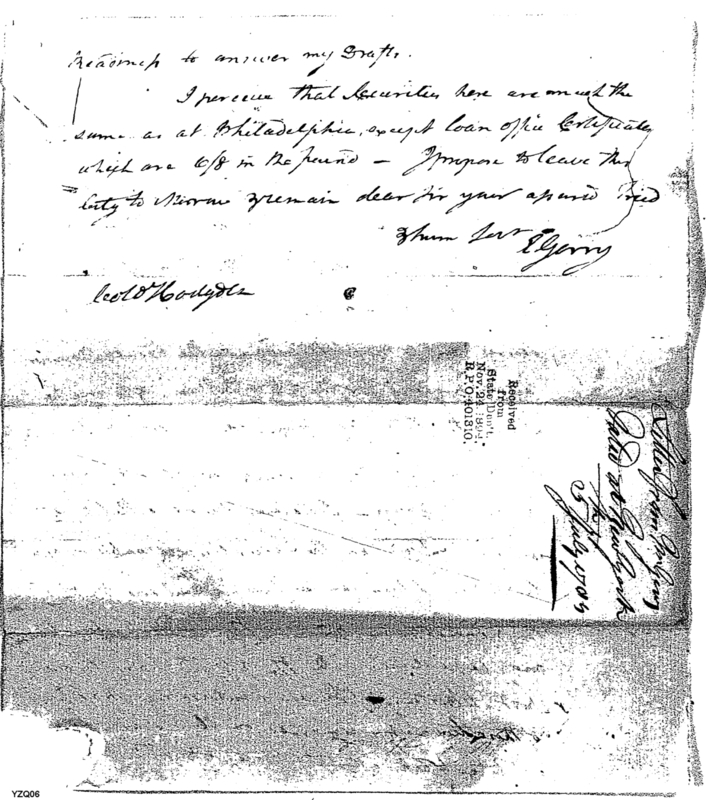 readiness to answer my Drafts.
I perceive that Securities here are much the
same as at Philadelphia, except loan office Certificates
which are 6/8 in the pound – I propose to leave this
City to Morrow & remain dear sir your assured friend
& hum Servt
E Gerry
Colo Hodgdon
Received
from
State Dep't.
Nov. 24, 1894.
R.P.O. 401310.
Letter from
dated at New York
5 July 178
YZQ06